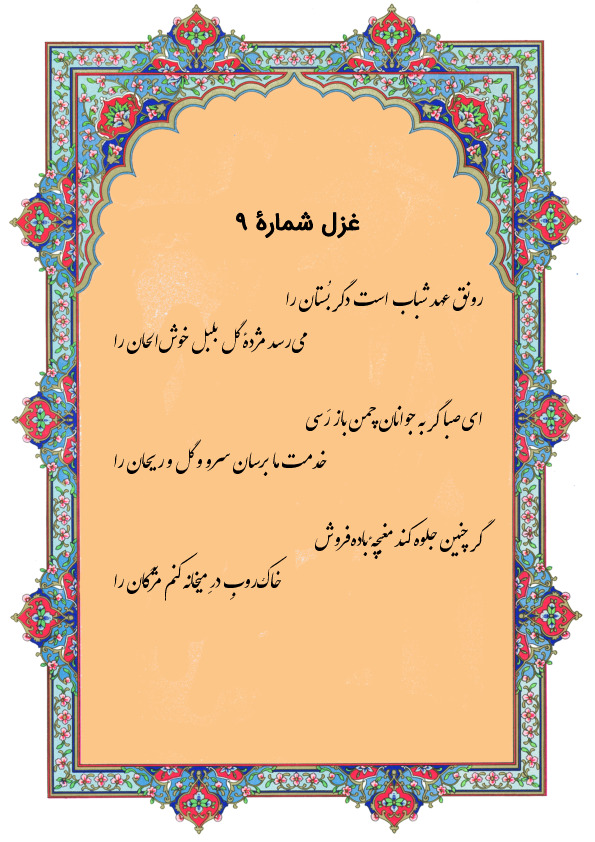 غزل شمارهٔ ۹
رونق عهد شباب است دگر بُستان را
می‌رسد مژدهٔ گل بلبل خوش‌الحان را
ای صبا گر به جوانان چمن باز رَسی
خدمت ما برسان سرو و گل و ریحان را
گر چنین جلوه کند مغبچهٔ باده‌فروش
خاک‌روبِ درِ میخانه کنم مژگان را